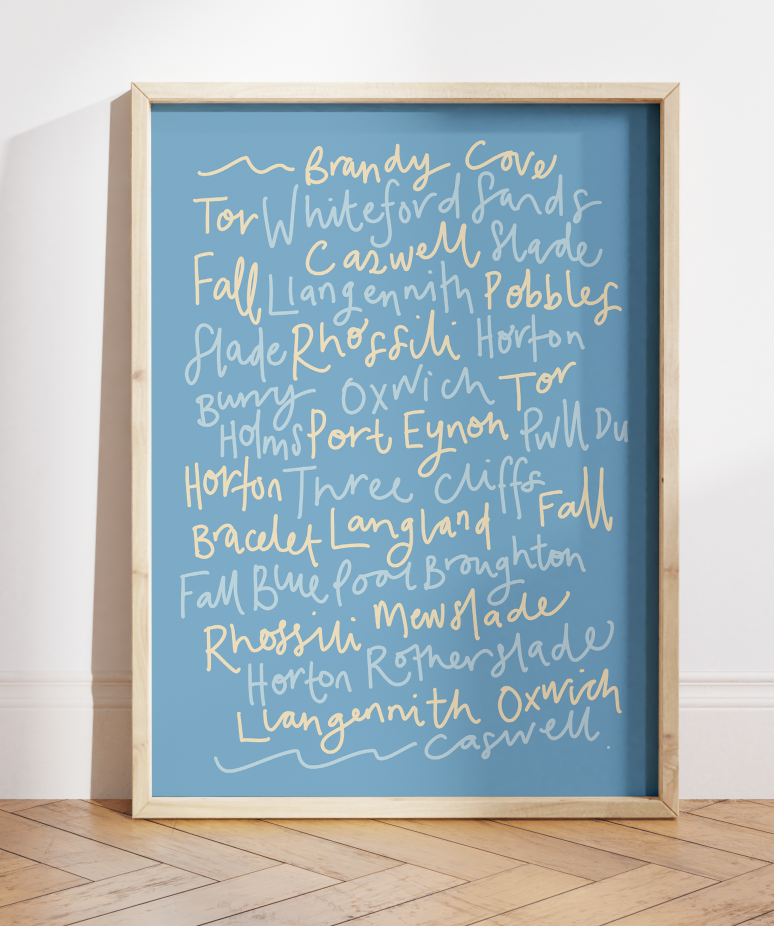 Brandy Cove
Tor Whiteford Sands
Caswell Slade
Fall Llangennith Pobbles
Slade Rhossili Horton
Burry Oxwich Tor
Holms Port Eynon Pwll Du
Horton Three Cliffs Fall
Bracelet Langland
Fall Blue Pool Broughton
Rhossili Mewslade
Horton Rotherslade
Llangennith Oxwich
Caswell.